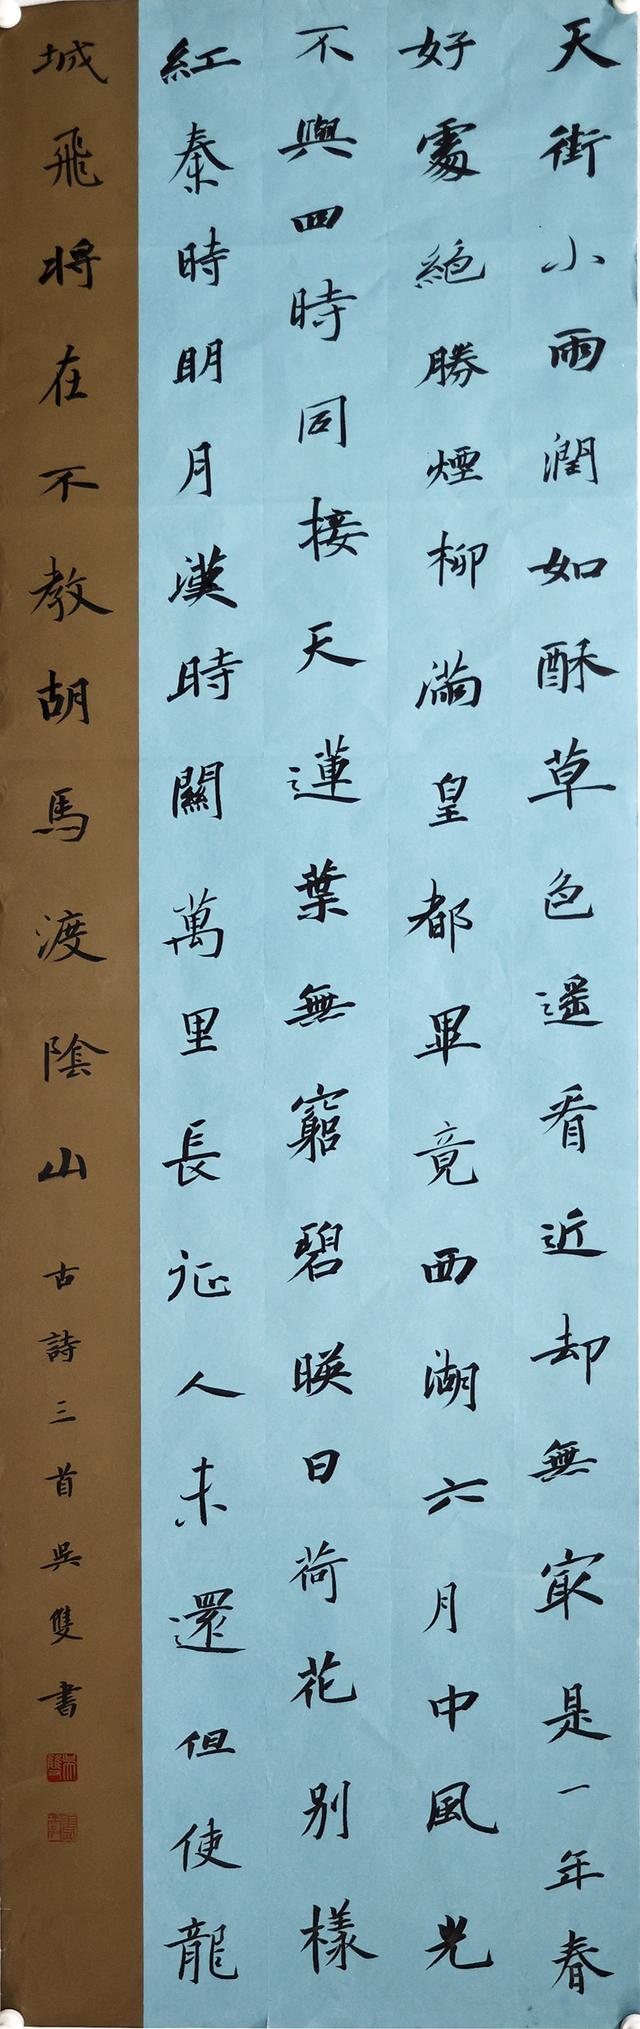 天街小雨潤如酥草色遥看近却無㝡是一年春
好處絕勝煙柳滿皇都畢竟西湖六月中風光
不與四時同接天蓮葉無窮碧暎日荷花别樣
紅秦時明月漢時關萬里長征人未還但使龍
城飛將在不教胡馬渡陰山
古詩三首吳雙書